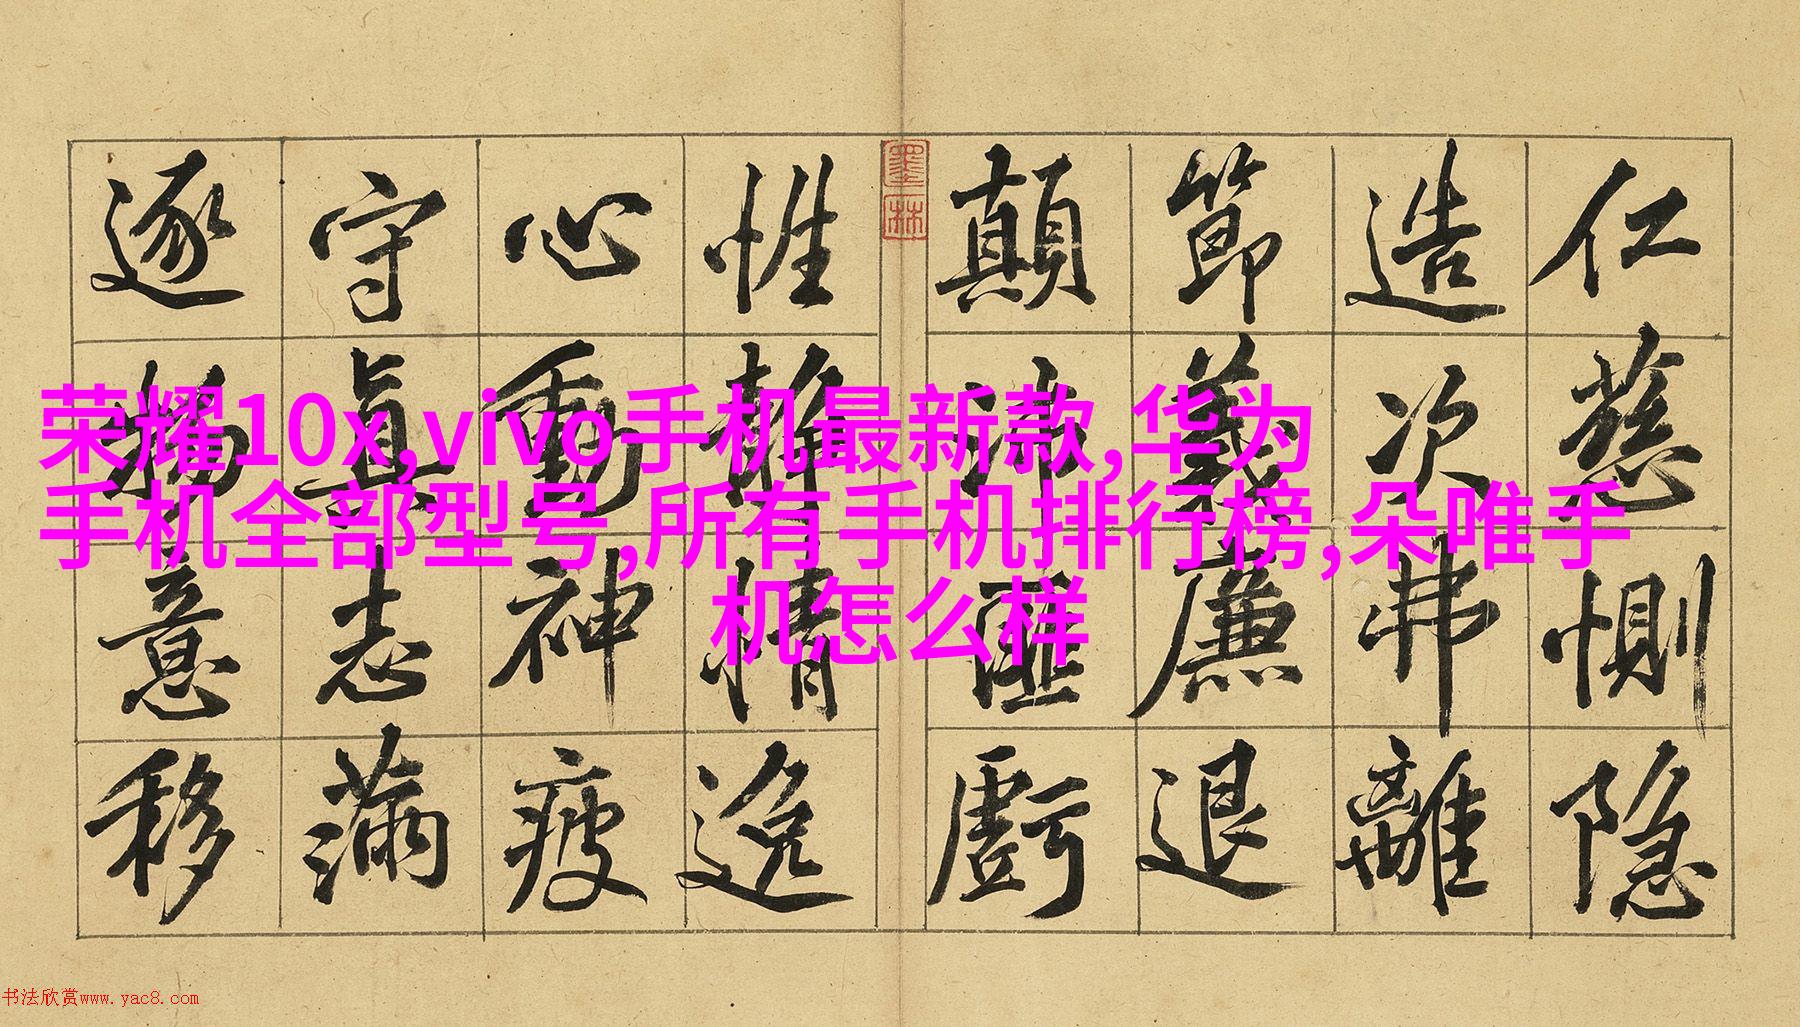 荣耀10x,vivo手机最新款,华为
手机全部型号,所有手机排行榜,朵唯手
机怎么样
仁慈惻隐
造次弗離
節義廉退
顛沛匪虧
性靜情逸
心動神疲
守眞志滿
逐物意移
墨林
书法欣赏www.yac8.com